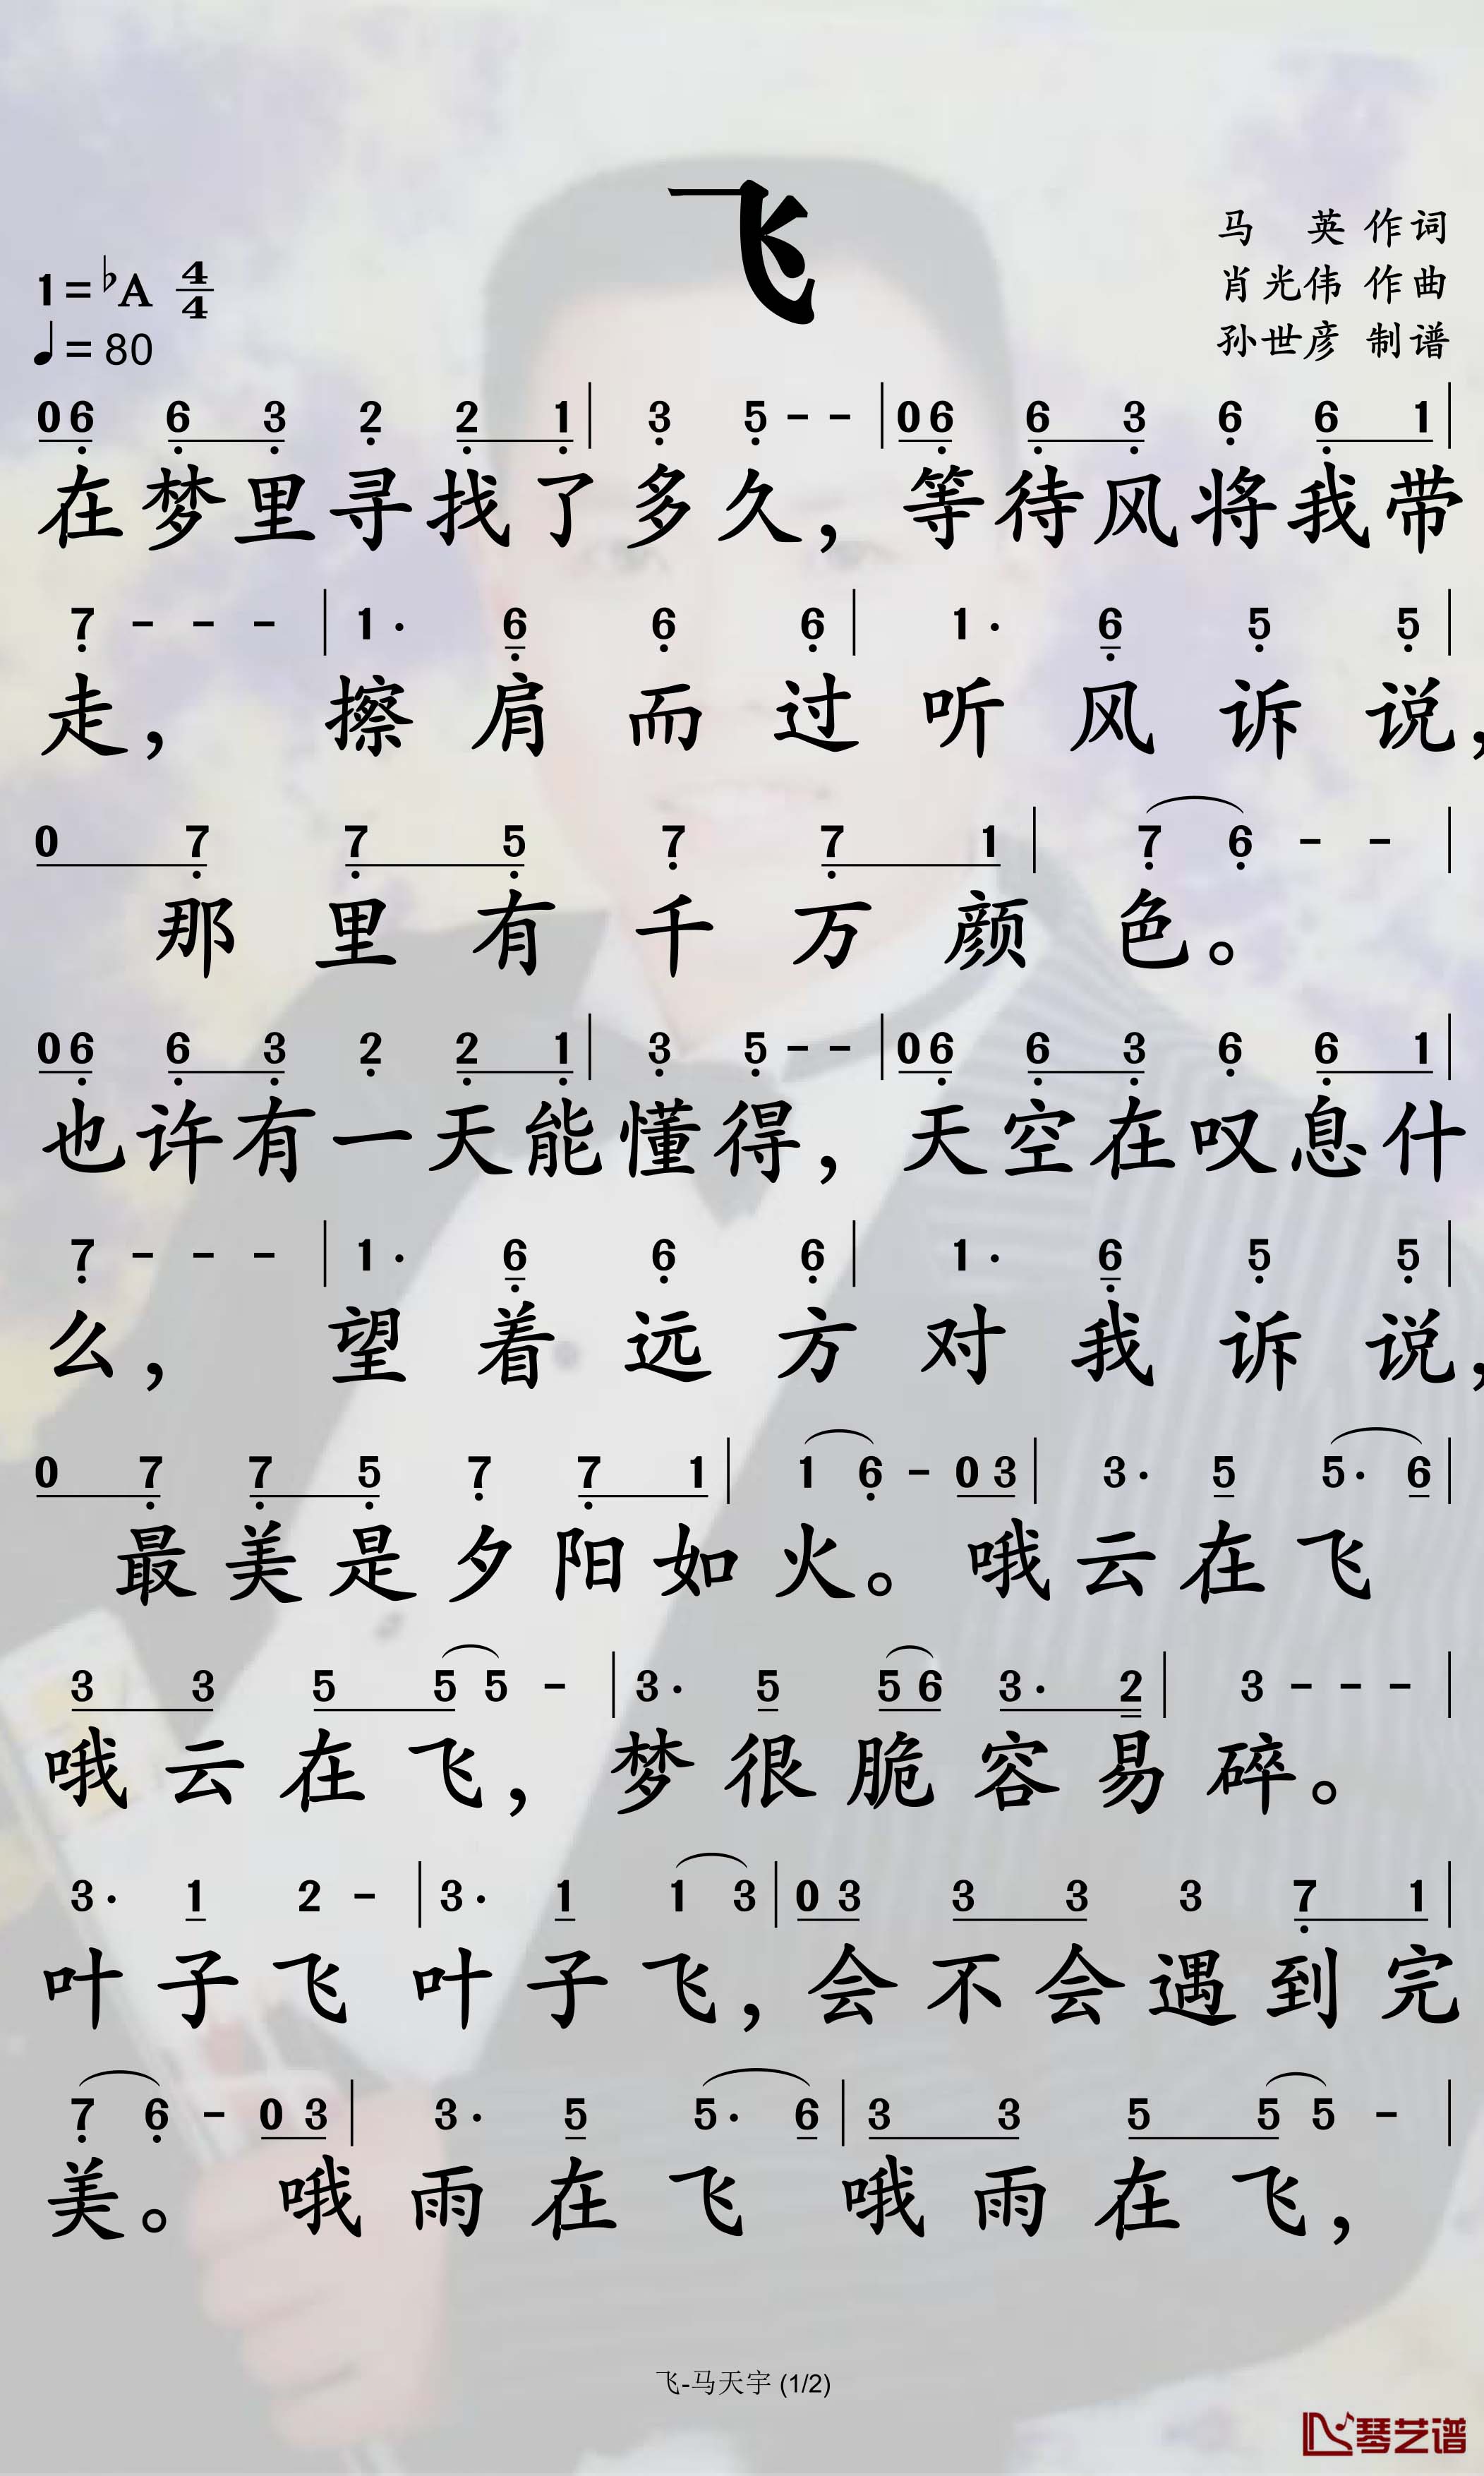 飞
马 英 作词
肖光伟 作曲
孙世彦 制谱
1=♭A 4/4
♩=80
06 6 3 2 2 1 | 3 5 - - | 06 6 3 6 6 1 |
在梦里寻找了多久，等待风将我带
7 - - - | 1· 6 6 6 | 1· 6 5 5 |
走， 擦肩而过听风诉说，
0 7 7 5 7 7 1 | 7 6 - - |
那里有千万颜色。
06 6 3 2 2 1 | 3 5 - - | 06 6 3 6 6 1 |
也许有一天能懂得，天空在叹息什
7 - - - | 1· 6 6 6 | 1· 6 5 5 |
么， 望着远方对我诉说，
0 7 7 5 7 7 1 | 1 6 - 0 3 | 3· 5 5· 6 |
最美是夕阳如火。哦云在飞
3 3 5 5 5 - | 3· 5 5 6 3· 2 | 3 - - - |
哦云在飞，梦很脆容易碎。
3· 1 2 - | 3· 1 1 3 | 0 3 3 3 3 7 1 |
叶子飞叶子飞，会不会遇到完
7 6 - 0 3 | 3· 5 5· 6 | 3 3 5 5 5 - |
美。 哦雨在飞 哦雨在飞，
飞-马天宇 (1/2)
琴艺谱